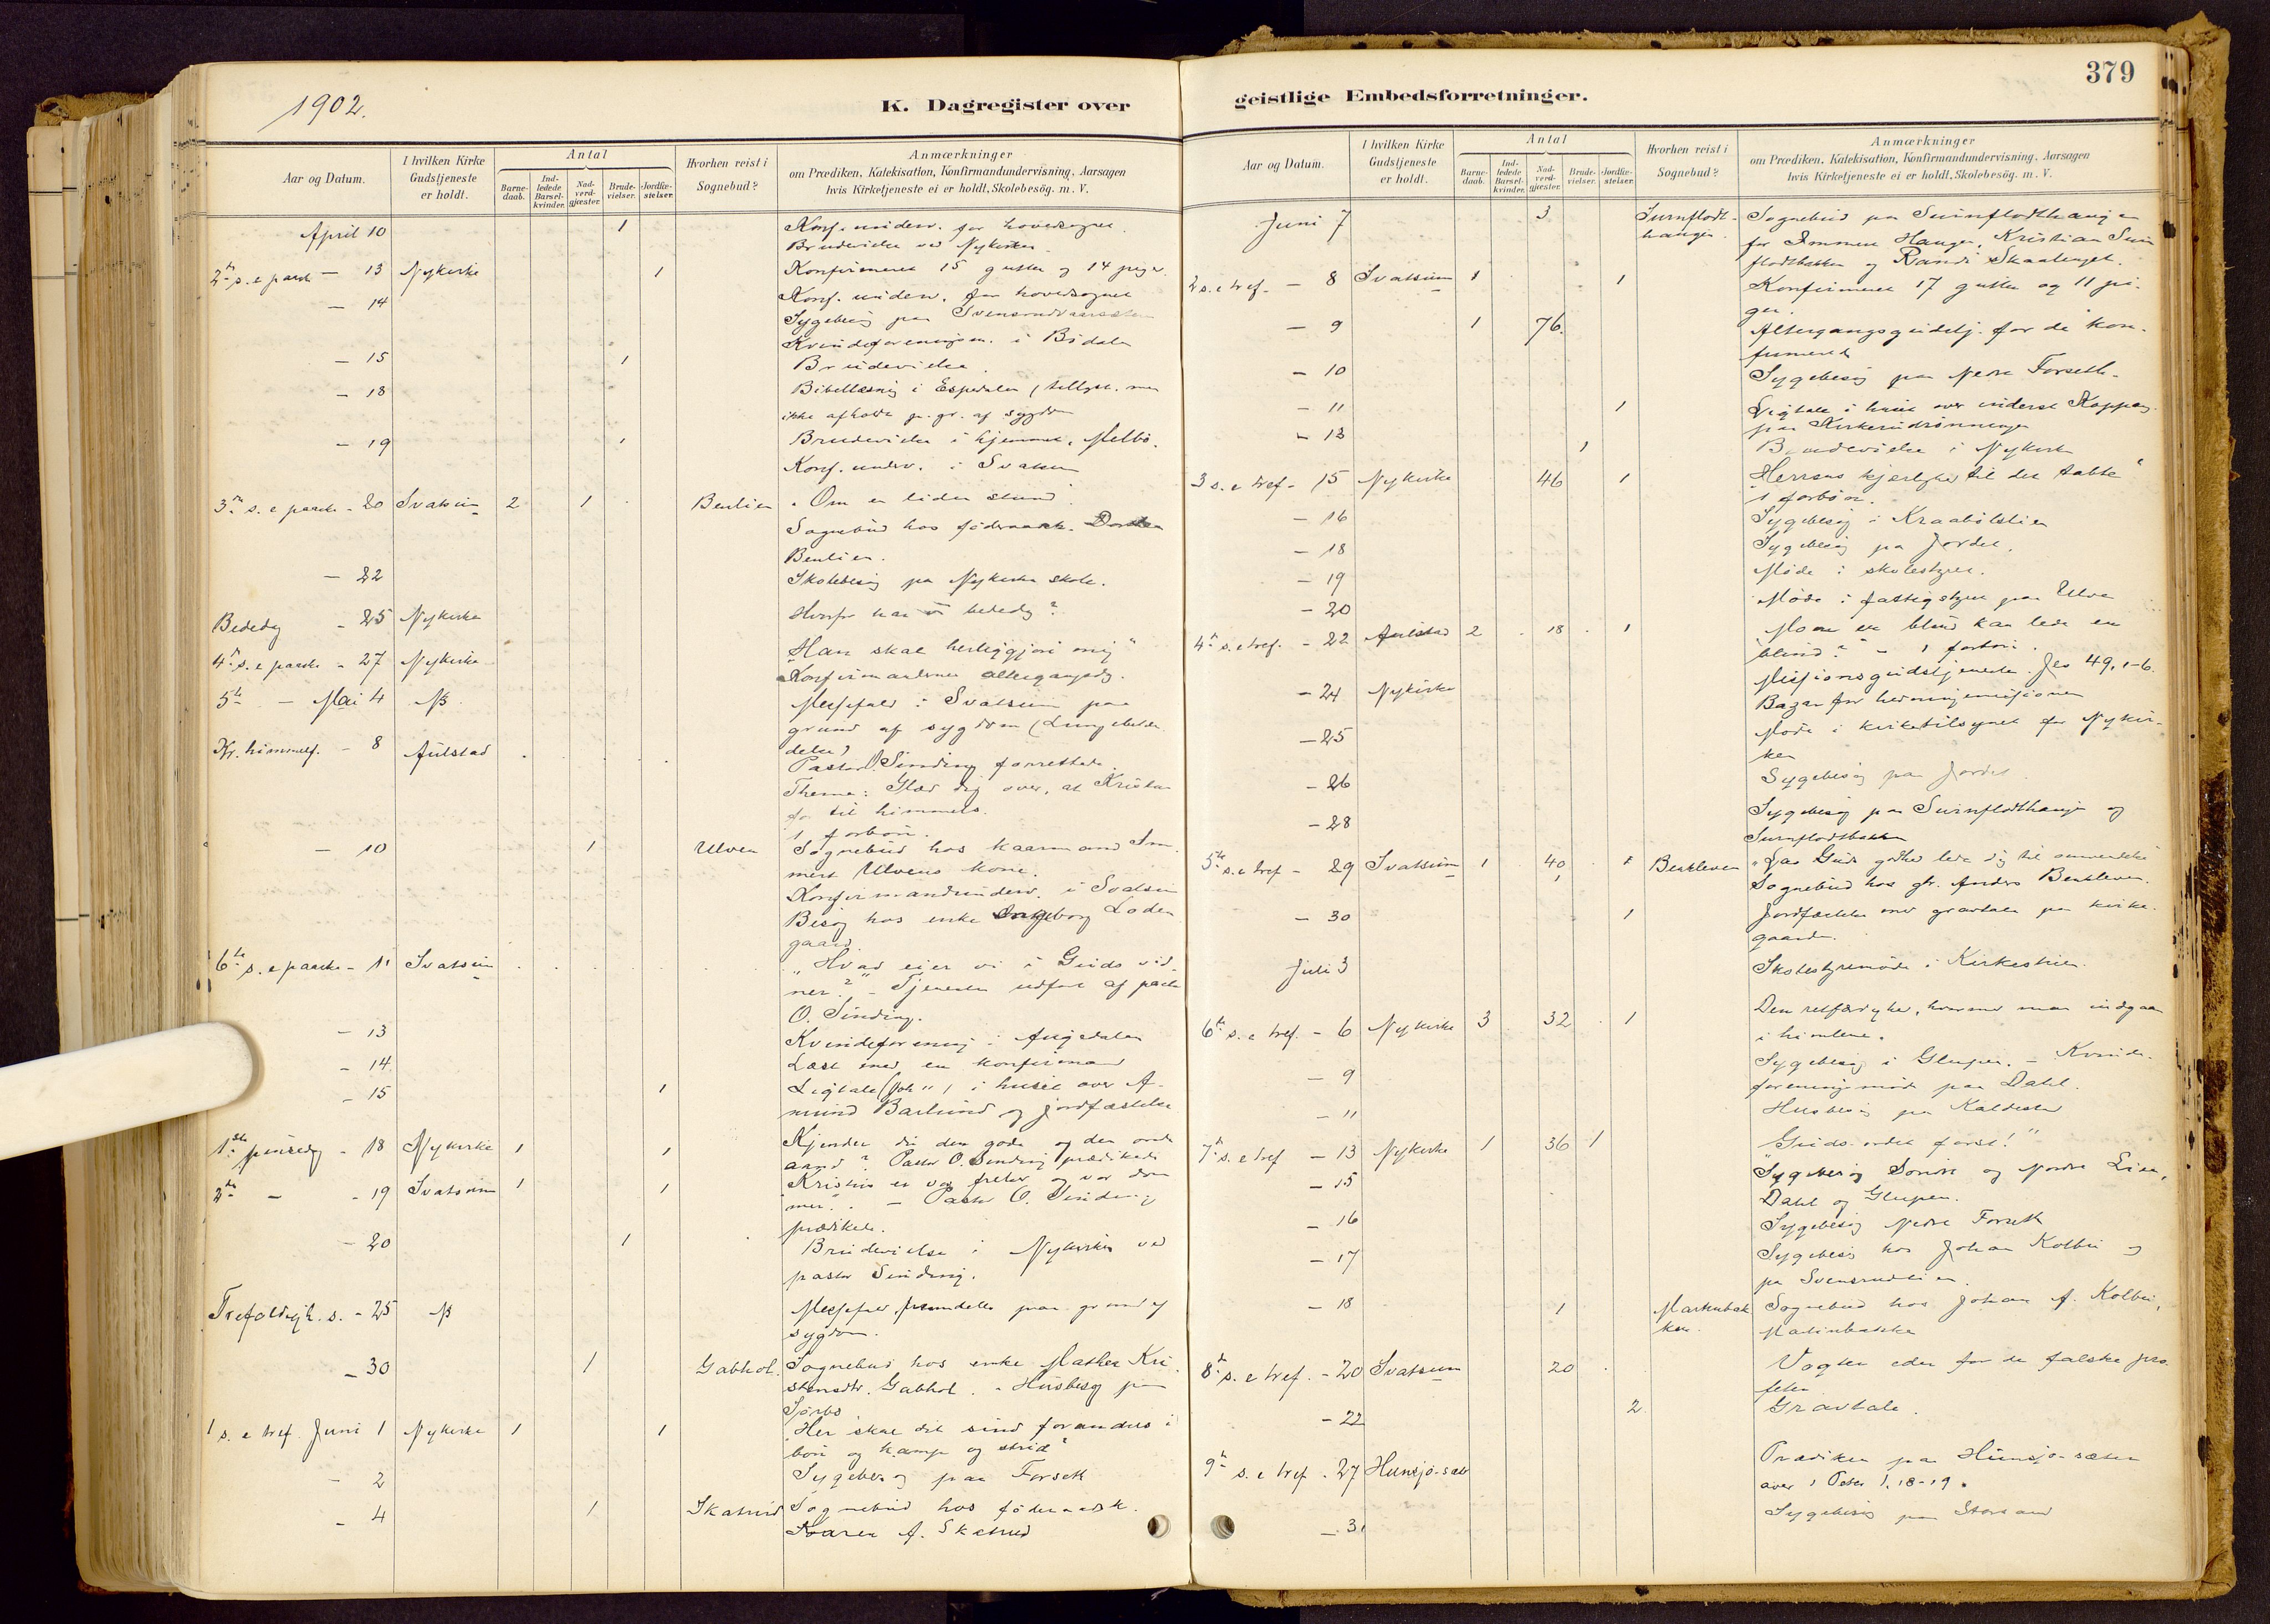 1902.
K. Dagregister over
Aar og Datum.
I hvilken Kirke
Gudstjeneste
er holdt.
Antal
Barne-
daab.
Ind-
ledede
Barsel-
kvinder.
Nad-
verd-
gjæster.
Brude-
vielser.
Jordfæ-
stelser.
Hvorhen reist i
Sognebud?
Anmærkninger
om Prædiken, Katekisation, Konfirmandundervisning, Aarsagen
hvis Kirketjeneste ei er holdt, Skolebesøg. m. V.
April 10 1 Konf. underv. for hovedsognet.
Brudevielse ved Nykirken
2den s. e paask - 13 Nykirke 1 Konfirmeret 15 gutter og 14 piger.
- 14 Konf. underv. for hovedsognet
Sygebesøg paa
Kvindeforeningsm. i Bødalen
- 15 1 Brudevielse.
- 18 Bibellæsning i Espedalen (tillyst. men
ikke afholdt p. gr. af sygdom
- 19 1 Brudevielse i hjemmet, Melbö.
Konf. underv. i Svatsum
3die s. e paask - 20 Svatsum 2 1 Benlien "Om en liden stund"
Sognebud hos föderaadsk.
Benlien.
- 22 Skolebesøg paa Nykirke skole.
Bededag - 25 Nykirke Hvorfor har vi bededag?
4de s. e paask - 27 Nykirke "Han skal herliggjøre mig"
Konfirmanternes altergangsdag.
5te - Mai 4 Messefald i Svatsum paa
grund af sygdom (Lungebetæn
delse)
Kr. himmelf. - 8 Aulstad Pastor Sinding forrettede.
Thema: Glæd dig over, at Kristus
for til himmels.
1 forbøn.
- 10 1 Ulven Sognebud hos kaarmand Im-
mert Ulvens kone.
Konfirmandunderv. i Svatsum
Besøg hos enke Ingeborg Loden
gaard.
6te s. e paask - 11 Svatsum "Hvad eier vi i Guds vid-
ner?" - Tjenesten udført af pastor
O. Sinding.
- 13 Kvindeforening i Augedalen
- 14 Læst med en konfirmand
- 15 1 Ligtale (Joh 11) i huset over A-
mund Barlund og jordfæstelse
1ste pinsedag - 18 Nykirke 1 1 Kjender du den gode og den onde
aand? Pastor O. Sinding prædikede
2den - - 19 Svatsum 1 1 Kristus er vor frelser og vor dom
mer. - Pastor O. Sinding
prædikede.
- 20 1 Brudevielse i Nykirken ved
pastor Sinding.
Trefoldigh. s. - 25 Messefald fremdeles paa grund af
sygdom.
- 30 1 Gabhol. Sognebud hos enke Mathea Kri
stensdtr. Gabhol. - Husbesøg paa
Sørbø
1 s. e tref. Juni 1 Nykirke 1 1 "Her skal dit sind forandres i
bøn og kamp og strid"
- 2 Sygebesøg paa Forseth
- 4 1 Skatrud Sognebud hos föderaadsk.
Karen A. Skatrud
geistlige Embedsforretninger.
379
Aar og Datum.
I hvilken Kirke
Gudstjeneste
er holdt.
Antal
Barne-
daab.
Ind-
ledede
Barsel-
kvinder.
Nad-
verd-
gjæster.
Brude-
vielser.
Jordfæ-
stelser.
Hvorhen reist i
Sognebud?
Anmærkninger
om Prædiken, Katekisation, Konfirmandundervisning, Aarsagen
hvis Kirketjeneste ei er holdt, Skolebesøg. m. V.
Juni 7 3 Surnflodt-
haugen. Sognebud paa Surnflodthaugen
for Immert Haugen, Kristian Surn
flodtbakken og Randi Skaalenget.
2 s. e tref. - 8 Svatsum 1 1 Konfirmeret 17 gutter og 11 pi-
ger.
- 9 1 76. Altergangsgudstj. for de kon-
firmerede
- 10 Sygebesøg paa Nedre Forseth.
- 11 1 Ligtale i huset over inderst
paa Kirkerudrønningen
- 13 1 Brudevielse i Nykirke
3 s. e tref. - 15 Nykirke 46 1 "Herrens kjerlighed til det tabte"
1 forbøn.
- 16 Sygebesøg i Kraabølslien
- 18 Sygebesøg paa Jordet.
- 19 Møde i skolestyret.
- 20 Møde i fattigstyret paa Ulven
4de s. e tref. - 22 Aulstad 2 18 1 "Mon en blind kan lede en
blind?" - 1 forbøn.
- 24 Nykirke Missionsgudstjeneste. Jes 49, 1-6.
Bazar for hedningemissionen
- 25 Møde i kirketilsynet for Nykir-
ken
- 26 Sygebesøg paa Jordet.
- 28 Sygebesøg paa Surnflodthaugen og
Surnflodtbakken
5te s. e tref - 29 Svatsum 1 40 1 Benkleven "Lad Guds godhed lede dig til omvendelse"
Sognebud hos gb. Anders Benkleven.
- 30 1 Jordfæstelse med gravtale paa kirke-
gaarden.
Juli 3 Skolestyremøde i Kirkestuen.
6te s. e tref. - 6 Nykirke 3 32 1 Den retfærdighed, hvormed man indgaar
i himlene.
- 9 Sygebesøg i Glupen. - Kvinde-
foreningsmøde paa Dahl.
- 11 Husbesøg paa
7de s. e tref - 13 Nykirke 1 36 1 "Guds ordet først!"
- 15 Sygebesøg Søndre og Nordre Lien,
Dahl og Glupen.
- 16 Sygebesøg Nedre Forseth
- 17 Sygebesøg hos Johan Kolbu og
paa Svensrudlien.
- 18 1 Martinbak
ken. Sognebud hos Johan A. Kolbu,
Martinbakken
8de s. e tref. - 20 Svatsum 20 Vogter eder for de falske pro-
feter
- 22 2. Gravtale.
9de s. e tref. - 27 Hunsjø-sæter Prædiken paa Hunsjø-sæter
over 1 Peter 1, 18-19.
- 31 Sygebesøg paa